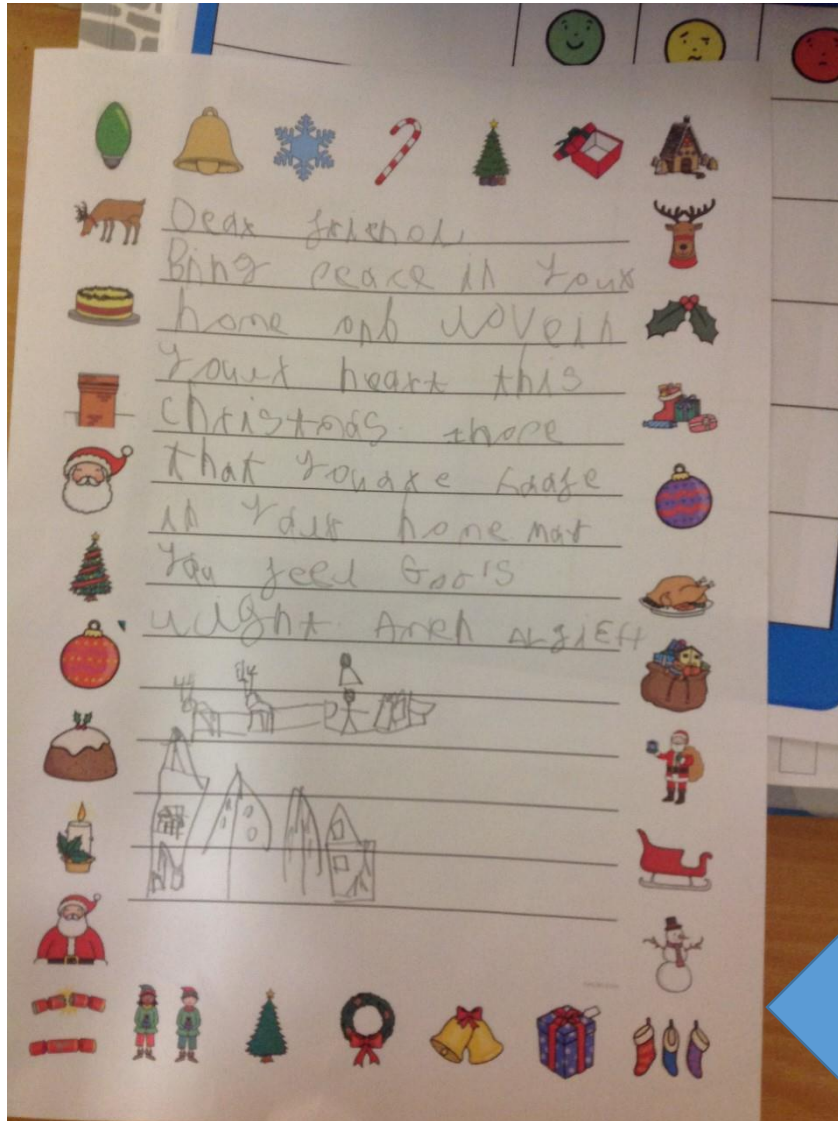 Dear friend
Bring peace in your
home and lovein
your heart this
christmas. ihope
that youare saafe
in your home may
you feel God's
light. Amen